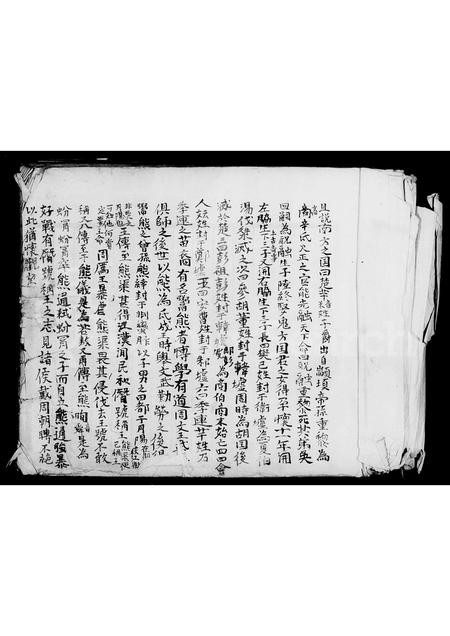 且說南方之國曰楚芈姓子爵出自顓頊帝孫重黎為
高辛氏火正之官能光融天下命曰祝融重黎死其弟吳
回嗣為祝融生子陸終娶鬼方國君之女得孕懷十一年開
左脇生下三子又開右脇生下三子長曰樊己姓封于衛墟為夏伯
湯伐桀滅之次曰參胡董姓封于韓墟周時為胡國後
滅於楚三曰彭祖彭姓封于韓墟為商伯商末始亡四曰會
人妘姓封于鄭墟五曰安曹姓封于邾墟六曰季連芈姓乃
季連之苗裔有名鬻熊者博學有道周文王武王
俱師之後世以熊為氏成王時舉文武勤勞之後得
鬻熊之曾孫熊繹封于荆蠻胙以子男之田都于丹陽
五傳至熊渠甚得江漢間民和僭號稱王
周厲王暴虐熊渠畏其侵伐去王號不敢
稱又八傳至于熊儀是為若敖又再傳至熊眴是為
蚡冒蚡冒卒熊通弒蚡冒之子而自立熊通強暴
好戰有僭號稱王之志見諸侯戴周朝聘不絕
以此猶懷觀望